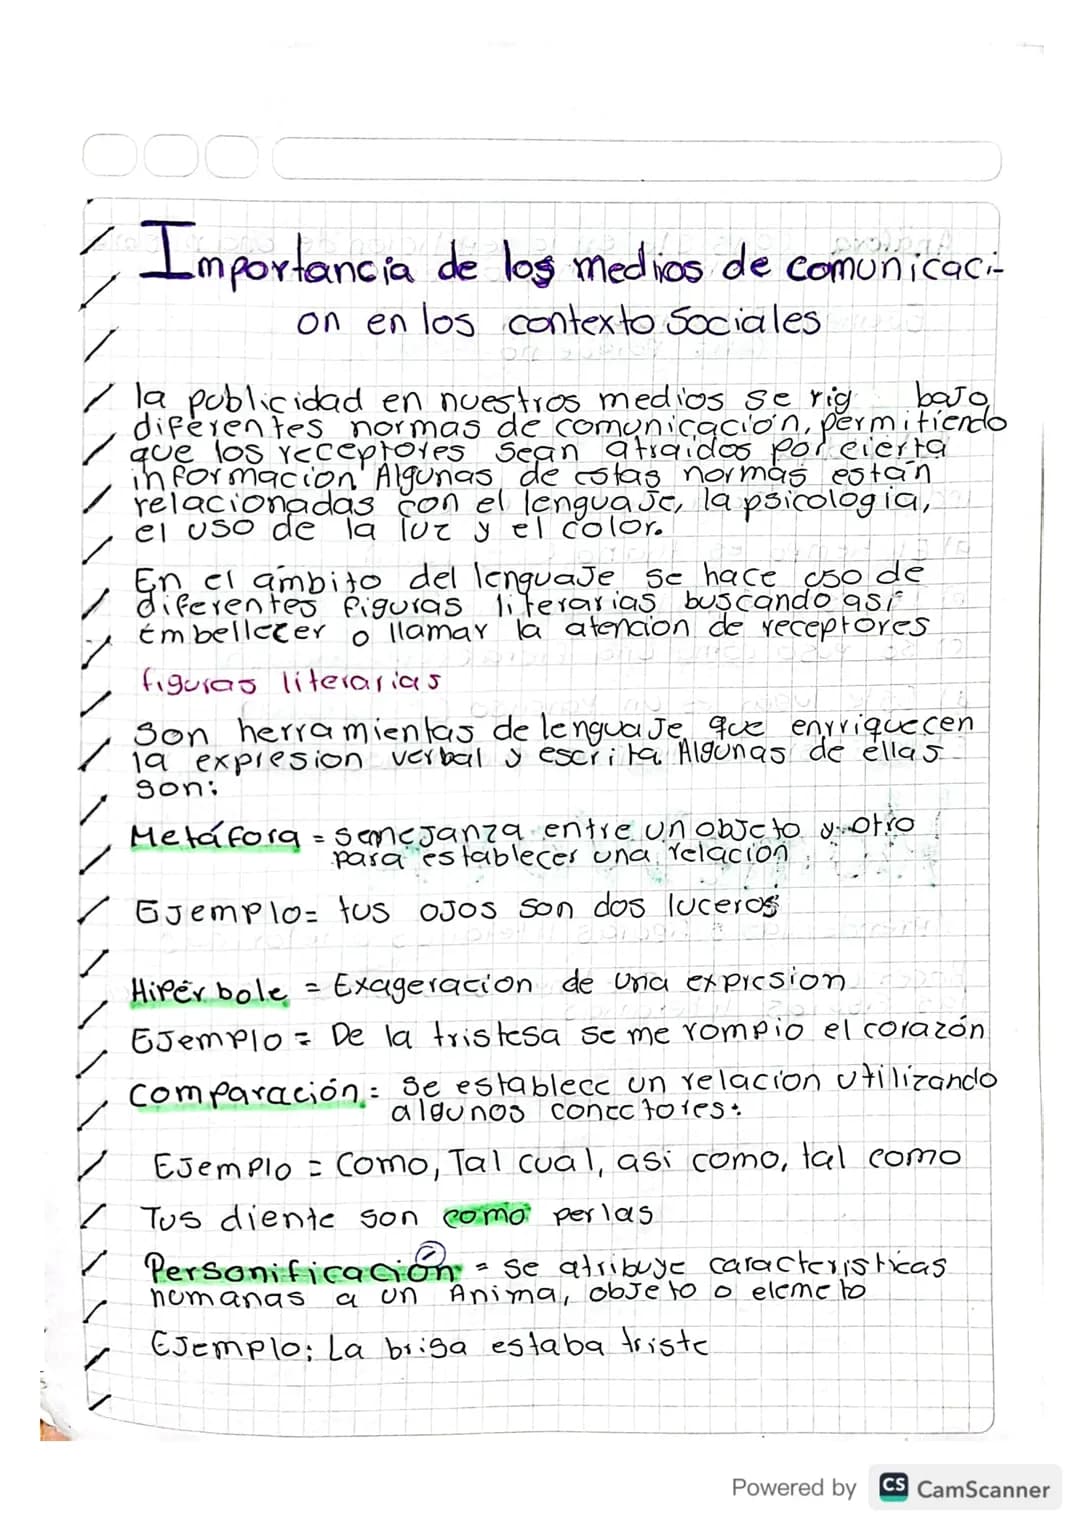 Importancia de los medios de comunicaci-
on en los contexto sociales
la publicidad en nuestros medios se rig bajo
diferentes normas de comunicación, permitiendo
que los receptores sean atraidos por cierta
informacion Algunas de estas normas están
relacionadas con el lenguaje, la psicologia,
el uso de la luz y el color.
En el ámbito del lenguaje se hace uso de
diferentes figuras literarias buscando asi
embellecer o llamar la atencion de receptores
figuras literarias
Son herramientas de lenguaje que enrriquecen
la expresion verbal y escrita Algunas de ellas
son:
Metáfora = semejanza entre un objeto y otro
para establecer una relacion
Ejemplo= tus ojos son dos luceros
Hipérbole = Exageracion de una expresion
Ejemplo = De la tristesa se me rompio el corazón
Comparación = Se establece un relacion utilizando
algunos conectores:
Ejemplo = Como, Tal cual, asi como, tal como
Tus diente son como perlas
Personificación = se atribuye caracteristicas
humanas a un Anima, objeto o elemeto
Ejemplo: La briga estaba triste
Powered by CS CamScanner